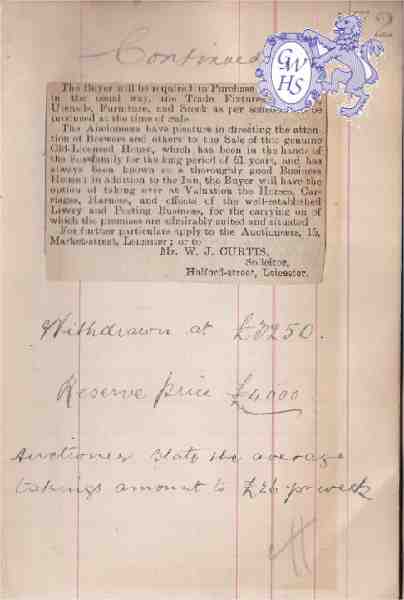 2
Continued
G W
H S
The Buyer will be required to Purchase
in the usual way, the Trade Fixtures
Utensils, Furniture, and Stock as per
duced at the time of Sale.
The Auctioneers have pleasure in directing the atten-
tion of Brewers and others to the Sale of this genuine
Old-Licensed House, which has been in the hands of
the family for the long period of 61 years, and has
always been known as a thoroughly good Business
House; in addition to the Inn, the Buyer will have the
option of taking over at Valuation the Horses, Car-
riages, Harness, and effects of the well-established
Livery and Posting Business, for the carrying on of
which the premises are admirably suited and situated
For further particulars apply to the Auctioneers, 15,
Market-street, Leicester; or to
Mr. W. J. CURTIS,
Solicitor,
Halford-street, Leicester.
Withdrawn at £3250.
Reserve price £4000
Auctioneer state the average
takings amount to £26 per week